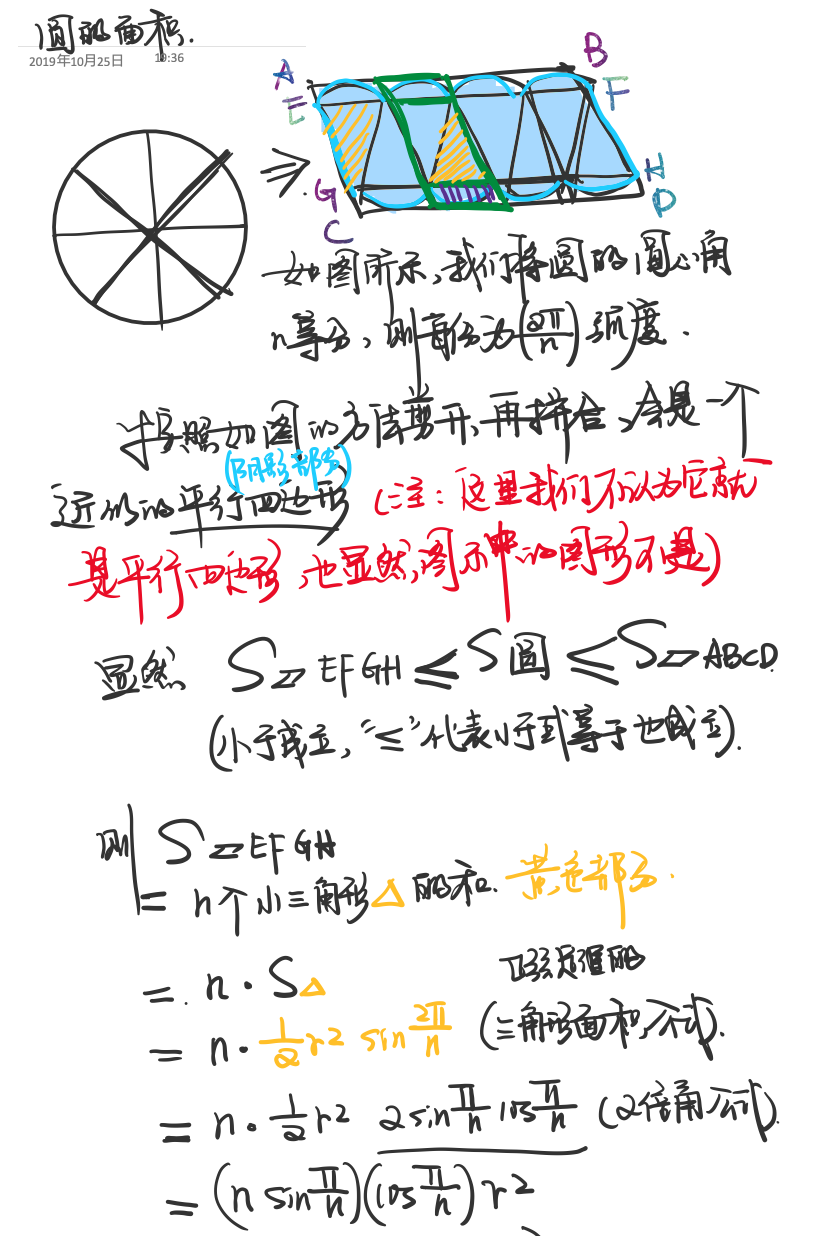 圆的面积.
2019年10月25日 19:36
A B
E F
G H
C D
如图所示,我们将圆的圆心角
n等分,则每份为(2π/n)弧度.
按照如图的方法剪开,再拼合,会是一个
(阴影部分)
近似的平行四边形 (注:这里我们不认为它就
是平行四边形,也显然,图示中的图形不是)
显然 S▱EFGH ≤ S圆 ≤ S▱ABCD
(小于成立,“≤”代表小于或等于也成立).
则 S▱EFGH
= n个小三角形△的和. 黄色部分.
= n·S△
正弦定理的
= n·1/2 r² sin 2π/n (三角形面积公式).
= n·1/2 r² 2sin π/n cos π/n (2倍角公式).
= (n sin π/n)(cos π/n) r²